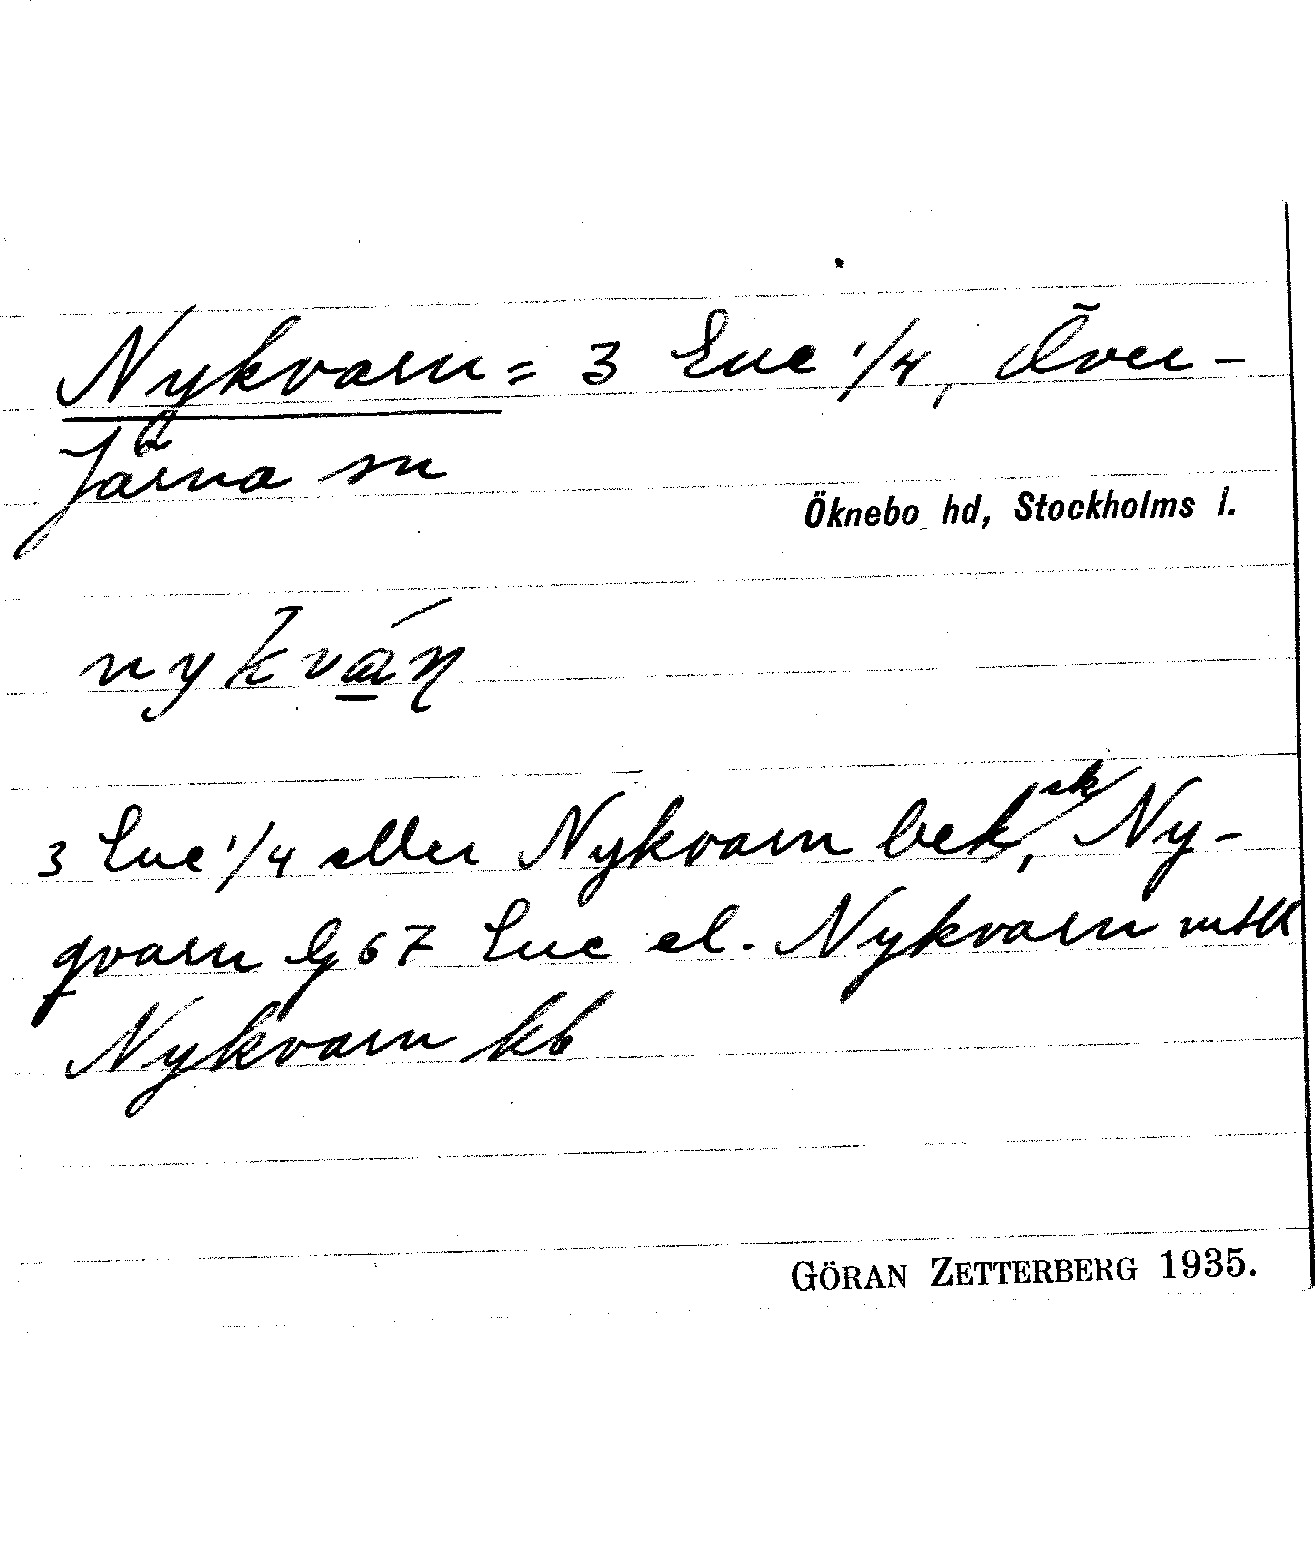 Nykvarn = 3 Ene 1/4, Över-
Järna sn
Öknebo hd, Stockholms l.
nykván
3 Ene 1/4 eller Nykvarn bek, Ny-
qvarn G 67 Ene el. Nykvarn
Nykvarn kb
GÖRAN ZETTERBERG 1935.